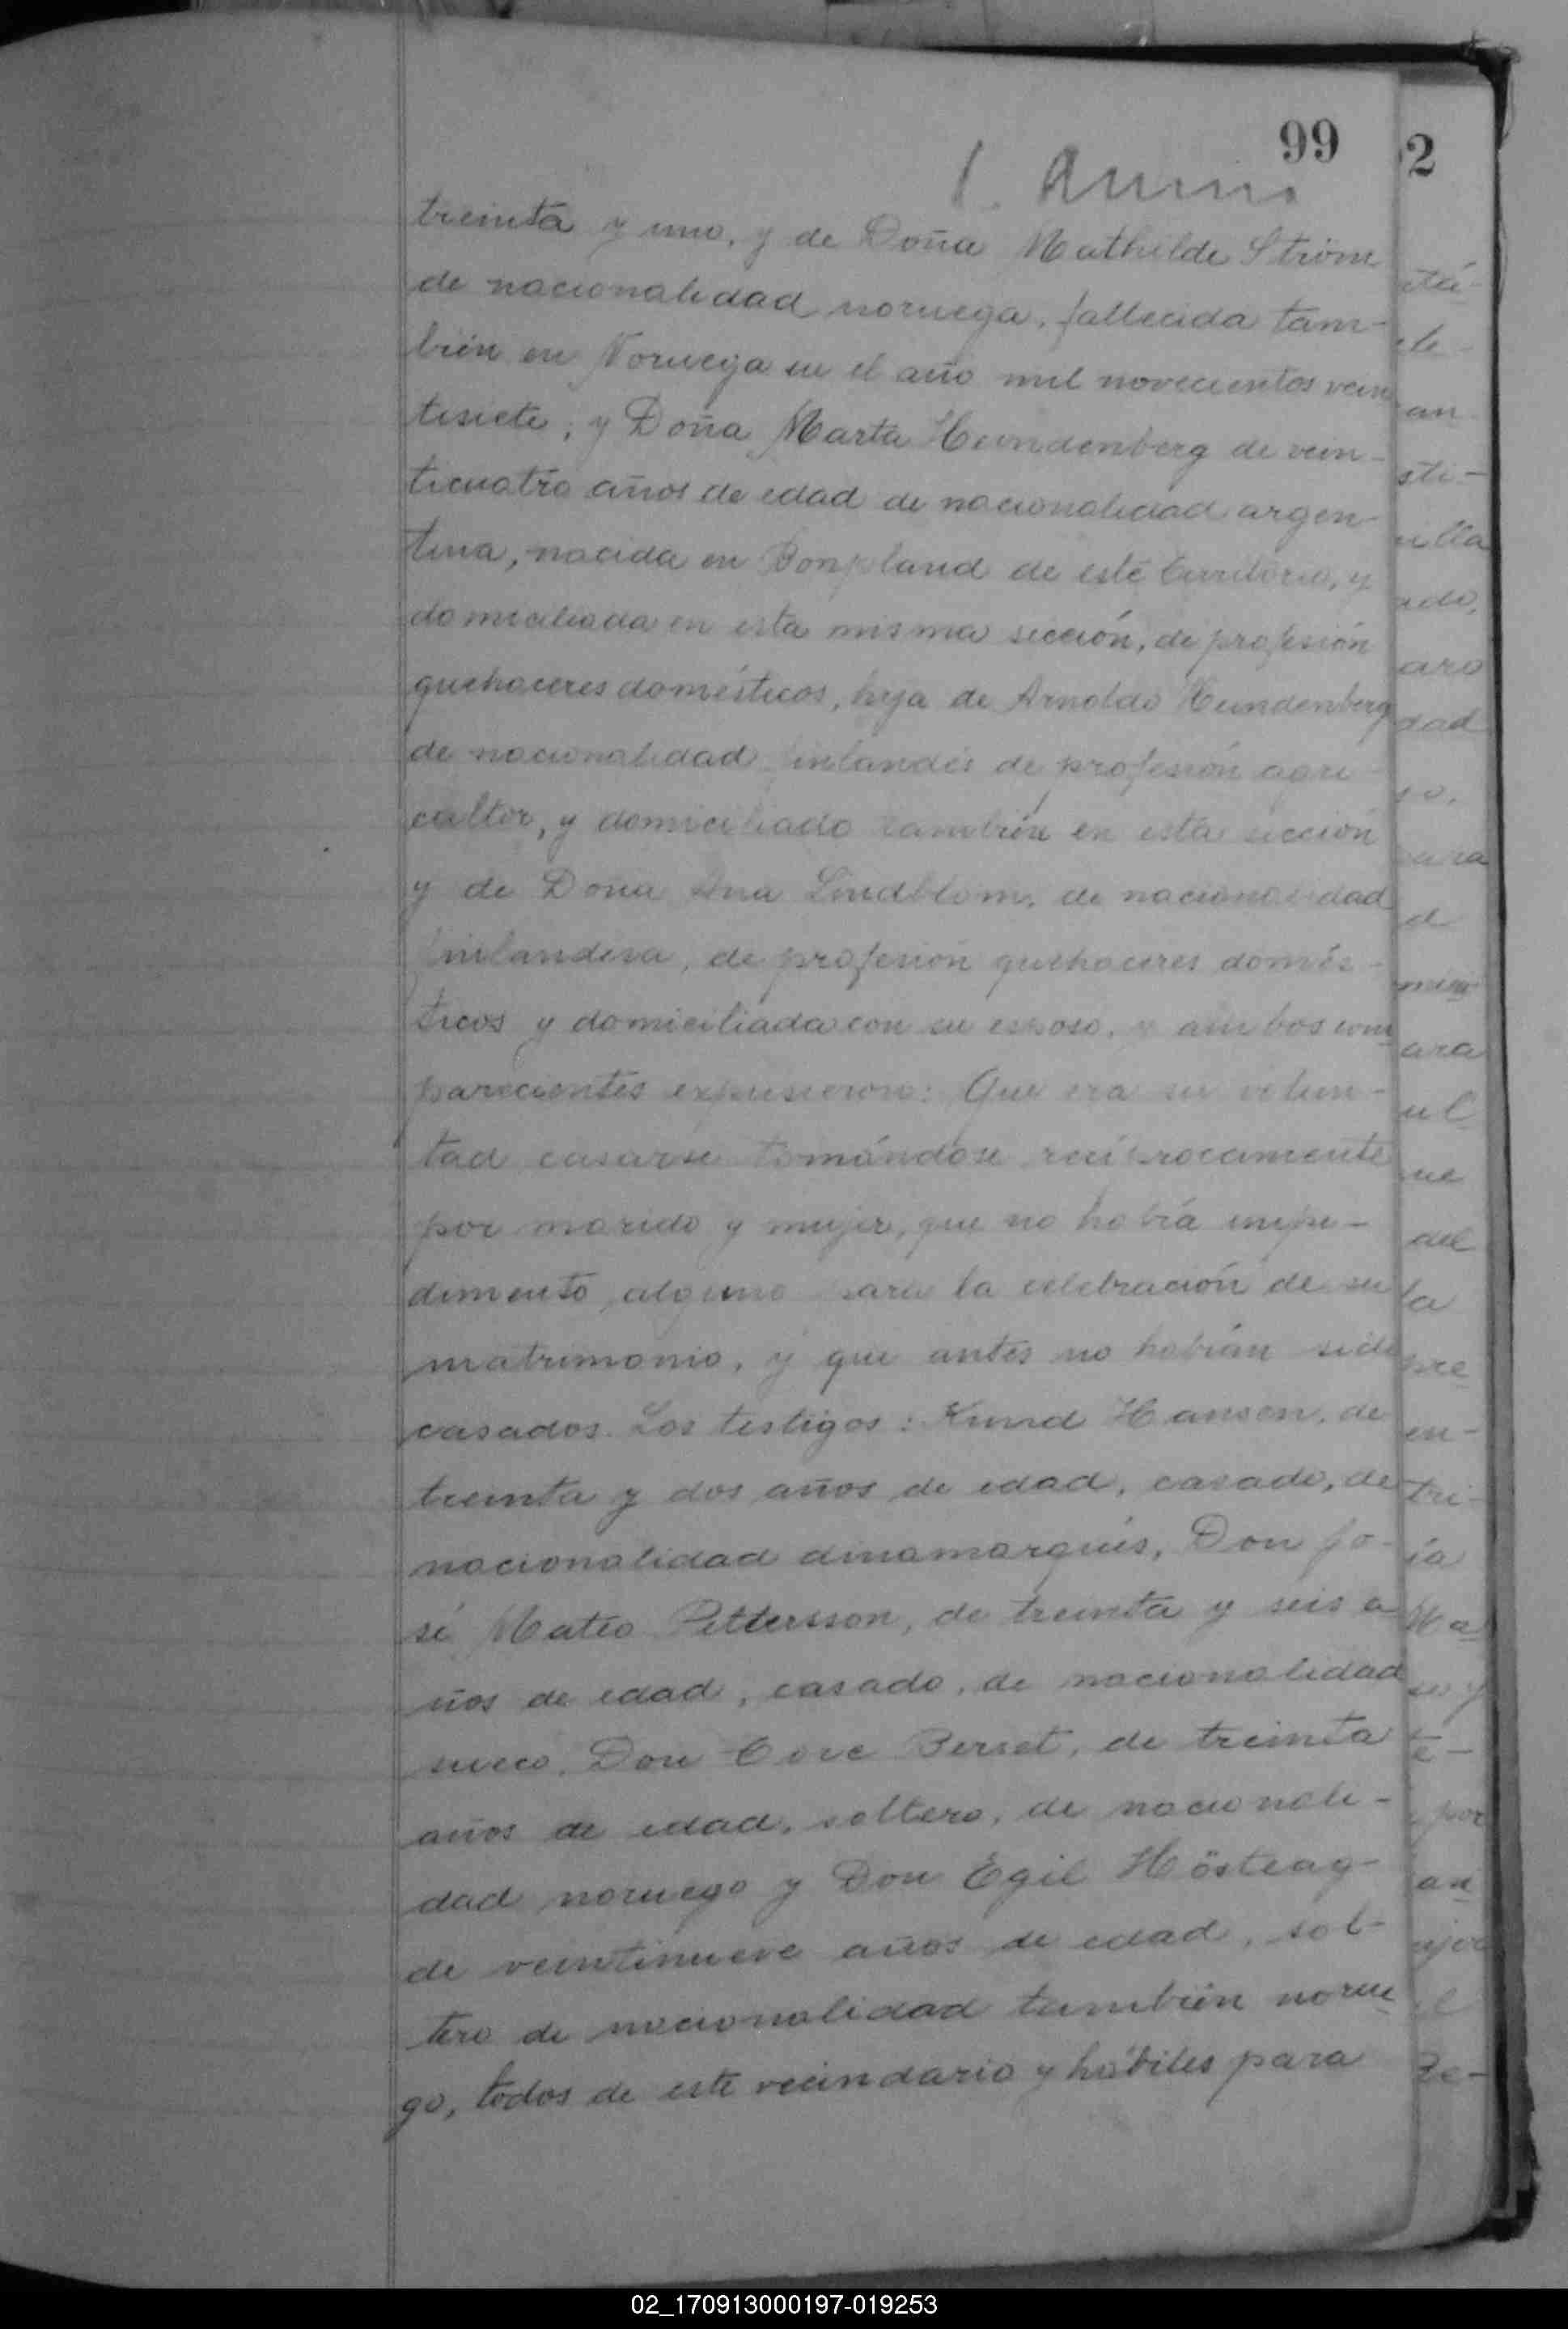 99
treinta y uno, y de Doña Mathilde Ström
de nacionalidad noruega, fallecida tam-
bién en Noruega en el año mil novecientos vein
tisiete; y Doña Marta Heundenberg de vein-
ticuatro años de edad de nacionalidad argen-
tina, nacida en Bonpland de este territorio, y
domiciliada en esta misma sección, de profesión
quehaceres domésticos, hija de Arnoldo Heundenberg
de nacionalidad finlandés de profesión agri-
cultor, y domiciliado también en esta sección
y de Doña Ana Lindblom, de nacionalidad
finlandesa, de profesión quehaceres domés-
ticos y domiciliada con su esposo, y ambos com
parecientes expusieron: Que era su volun-
tad casarse tomándose recíprocamente
por marido y mujer, que no había impe-
dimento alguno para la celebración de su
matrimonio, y que antes no habían sido
casados. Los testigos: Knud Hansen, de
treinta y dos años de edad, casado, de
nacionalidad dinamarqués, Don Jo-
sé Mateo Pettersson, de treinta y seis a
ños de edad, casado, de nacionalidad
sueco, Don Berset, de treinta
años de edad, soltero, de nacionali-
dad noruego y Don Egil Hösteag-
de veintinueve años de edad, sol-
tero de nacionalidad también norue
go, todos de este vecindario y hábiles para
2
02_170913000197-019253